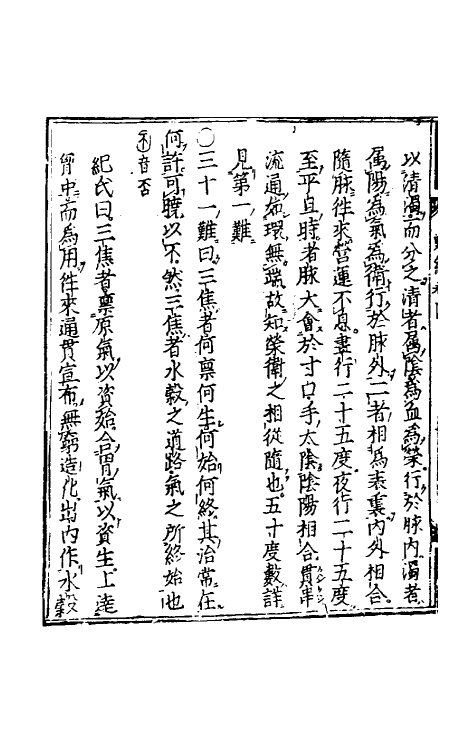 以清濁而分之清者屬陰為血為榮行於脉内濁者
屬陽為氣為衛行於脉外二者相為表裏内外相合
隨脉往來營運不息晝行二十五度夜行二十五度
至平旦時者脉大會於寸口手太陰陰陽相合貫串
流通如環無端故知榮衛之相從隨也五十度數詳
見第一難
〇三十一難曰三焦者何稟何生何始何終其治常在
何許可曉以不然三焦者水穀之道路氣之所終始也
不音否
紀氏曰三焦者稟原氣以資始合胃氣以資生上達
胷中而為用往來通貫宣布無窮造化出内作水穀